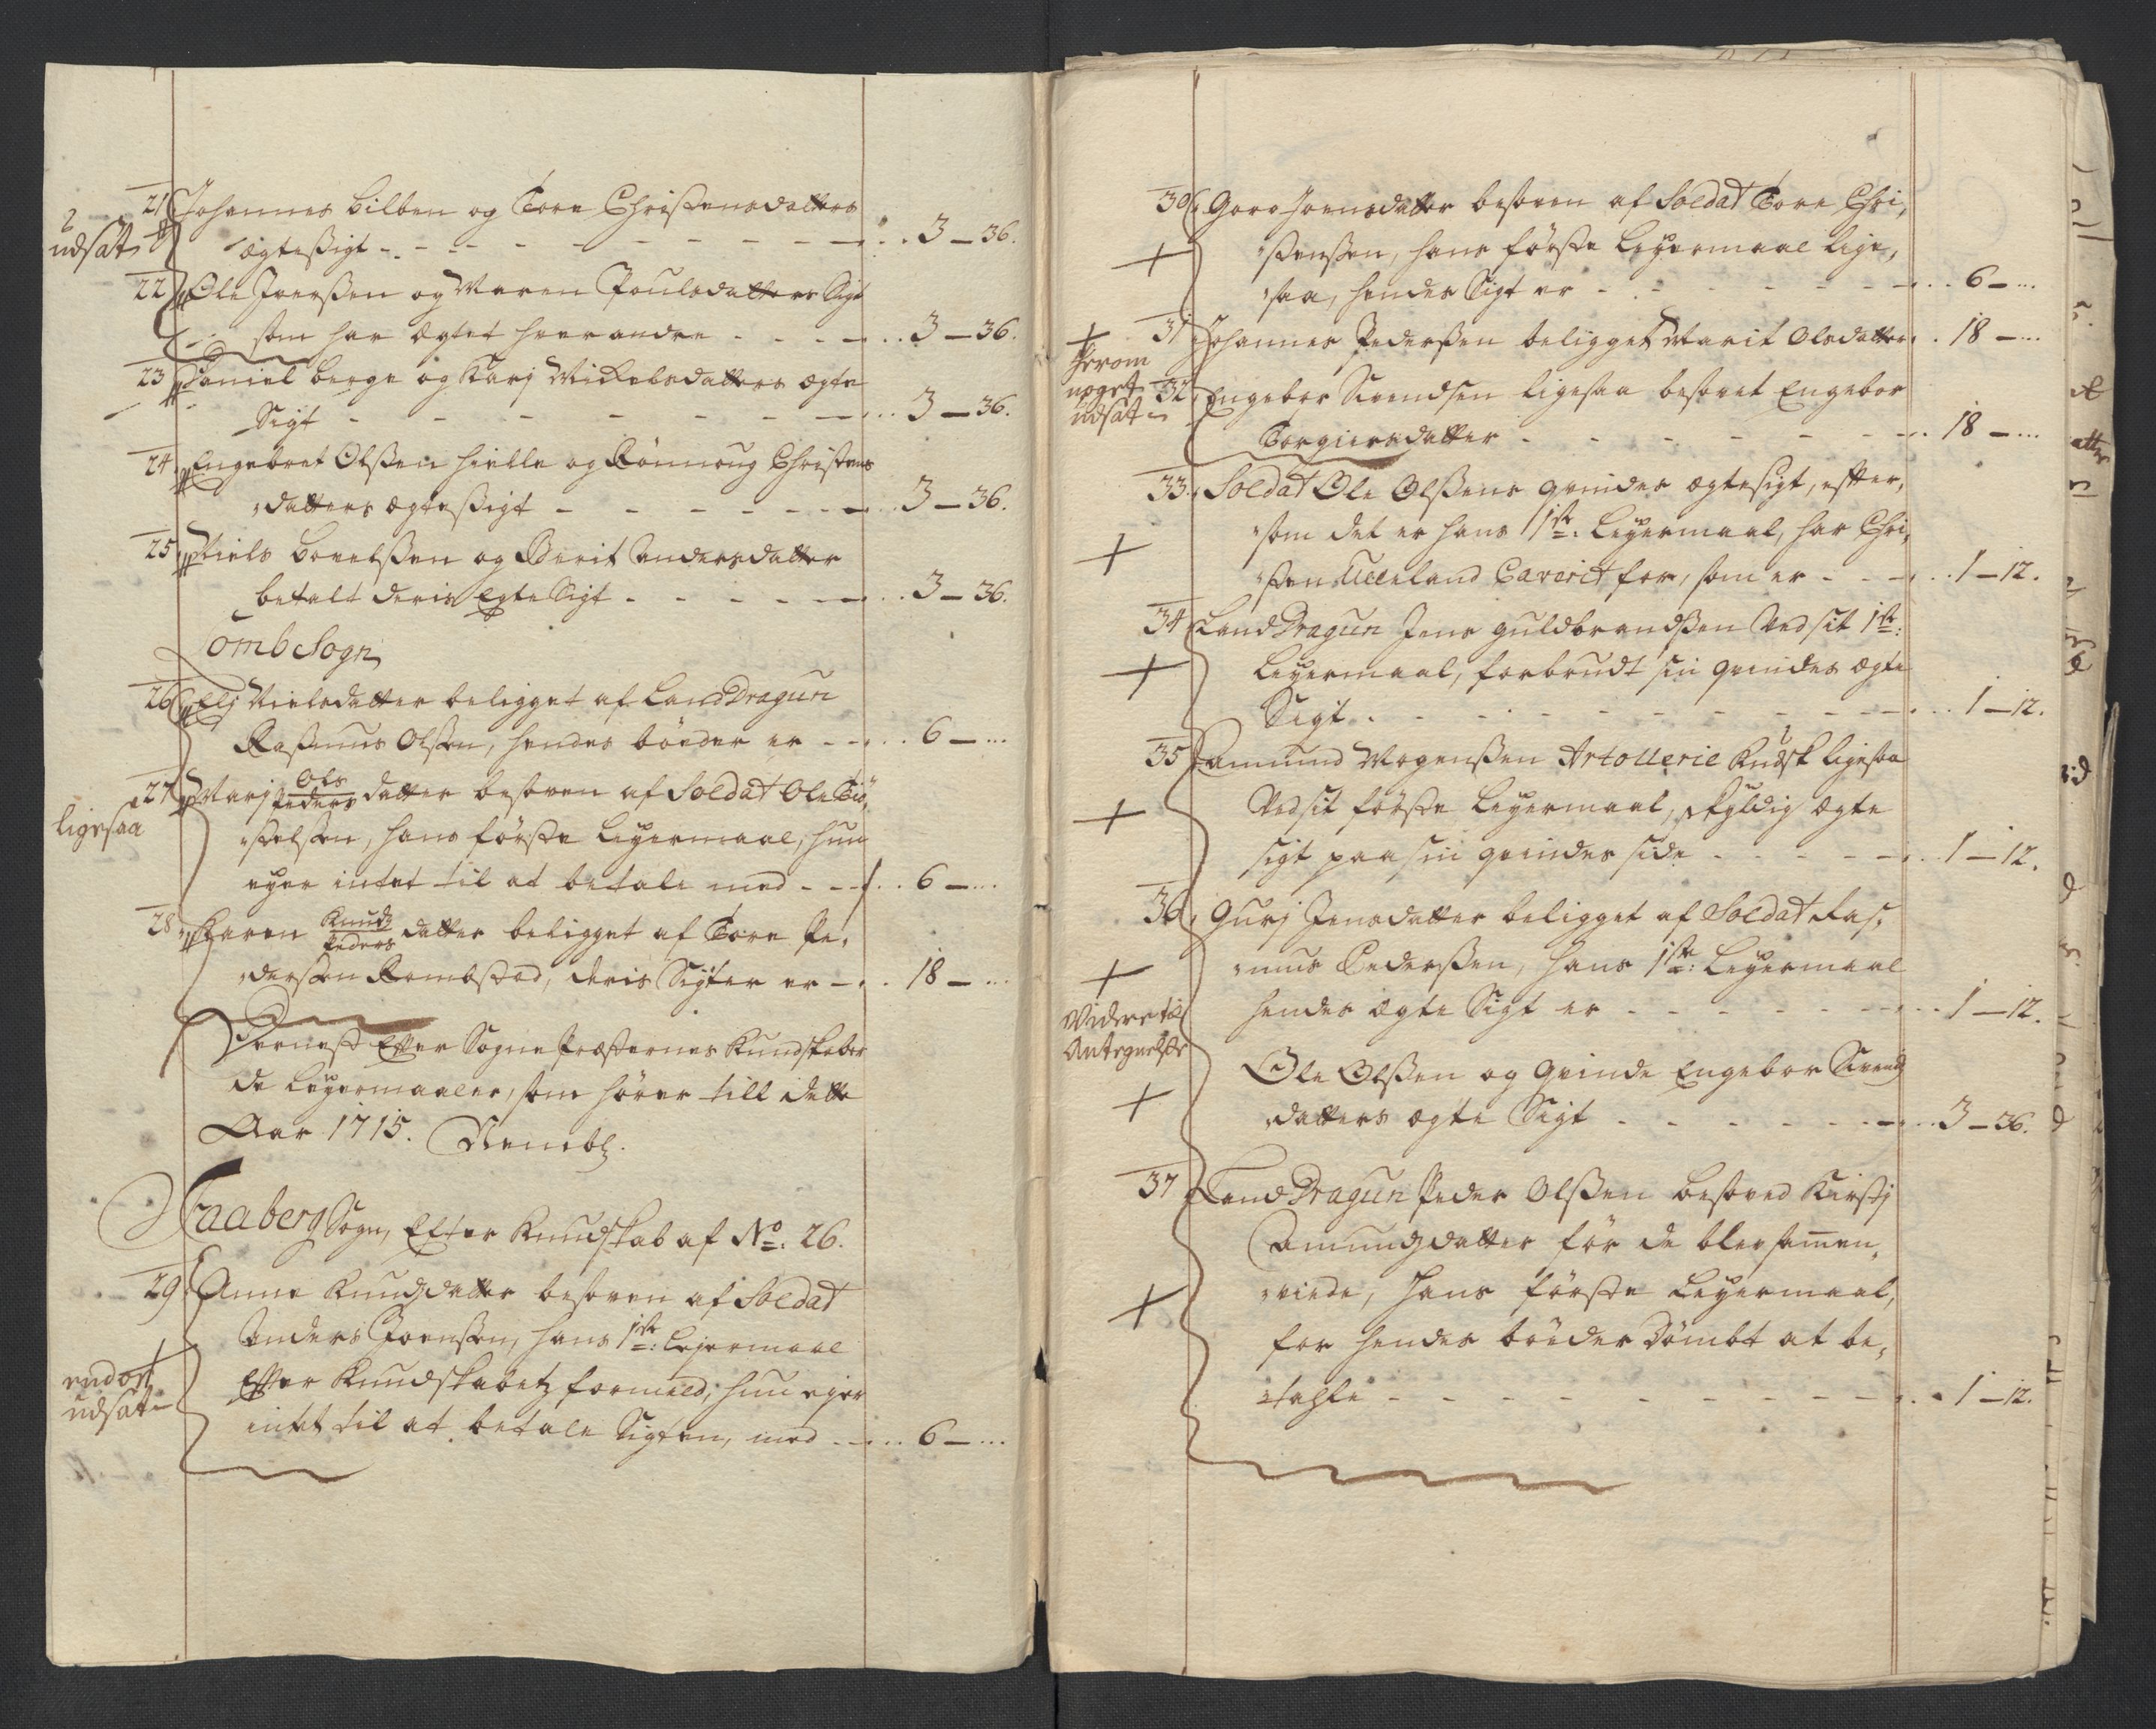 21 Johannes Bilben og Tore Christensdatters
2
udsat
ægtesigt - - - 3 – 36.
22 Ole Iversen og Maren Poulsdatters Sigt
som har ægtet hverandre - - - 3 – 36.
23 Daniel Berge og Karj Mickelsdatters ægte
Sigt - - - 3 – 36.
24. Engebret Olssen Hielle og Rönnoug Christens
datters ægtesigt - - - 3 – 36.
25. Niels Bovelssen og Berit Andersdatter
betalt deris Egte Sigt - - - 3 – 36.
Tomb Sogn
26 Elj Nielsdatter beligget af Land Dragun
Rasmus Olssen, hendes böeder er - - - 6 – ...
27 Marj Ols
Peders datter besoven af Soldat Ole
ligesaa
hans förste Leyermaal, hun
eyer intet til at betale med - - - 6 – ...
28 Karen Knuds
Peders datter beligget af Tore Pe,
derssen Rombstad, deris Sigter er - - 18 – ...
Dernest Efter Sogne Præsternes Kundskaber
de Leyermaaler, som hörer till dette
Aar 1715. Nembl.
Haaberg Sogn, Efter Kundskab af No. 26.
29. Anne Knudsdatter besoven af Soldat
Anders Joenssen, hans 1ste: Lejermaal
endost
udsat
Efter Kundskabets formeld, hun ejer
intet til at betale Sigten, med - - - 6 – ...
30. Goro Joensdatter besoven af Soldat Tore Chri,
+
stenssen, hans förste Leyermaal lige,
saa, hendes Sigt er - - - 6 – ...
31 Johannes Pederssen beligget Marit Olsdatter. 18 – ...
+
herom
noget
udsat
32. Engebor Svendsen ligesaa besovet Engebor
Torgiersdatter - - - 18 – ...
33. Soldat Ole Olssens qvindes ægtesigt, efter,
som det er hans 1ste: Leyermaal, har Chri,
+
sten Ulleland Caverit for, som er - - - 1 – 12.
34 Land Dragun Jens Guldbrandssen Ved sit 1ste:
+
Leyermaal, forbrudt sin qvindes ægte
Sigt - - - 1 – 12.
35 Aamund Mogenssen Artollerie Kudsk ligesaa
+
Ved sit förste Leyermaal, skyldig ægte
sigt paa sin qvindes side - - - 1 – 12.
36. Gurj Jensdatter beligget af Soldat Ras,
+
mus Pederssen, hans 1ste: Leyermaal
Videre til
Antegnelse
hendes ægte Sigt er - - - 1 – 12.
Ole Olssen og qvinde Engebor Svends
+
datters ægte Sigt - - - 3 – 36.
37 Land Dragun Peder Olssen besoved Kirstj
Amundsdatter för de blev samen,
+
viede, hans förste Leyermaal,
for hendes böeder Dömbt at be,
tahle - - - 1 – 12.